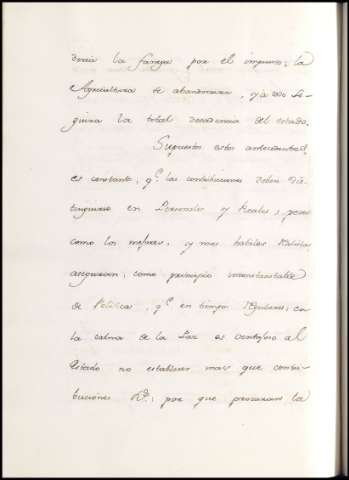 dreis la fanega por el impuesto; la
Agricultura se abandonara, y a esto se-
guira la total decadencia del estado.
Supuestos estos antecedentes,
es constante, q.e las contribuciones deben dis-
tinguirse en Personales y Reales; pero
como los mejores, y mas habiles Politicos
aseguran, como principio incontestable
de Politica, q.e en tiempo regular, en
la calma de la Paz es ventajoso al
Estado no establecer mas que contri-
buciones R.s; por que procuran la